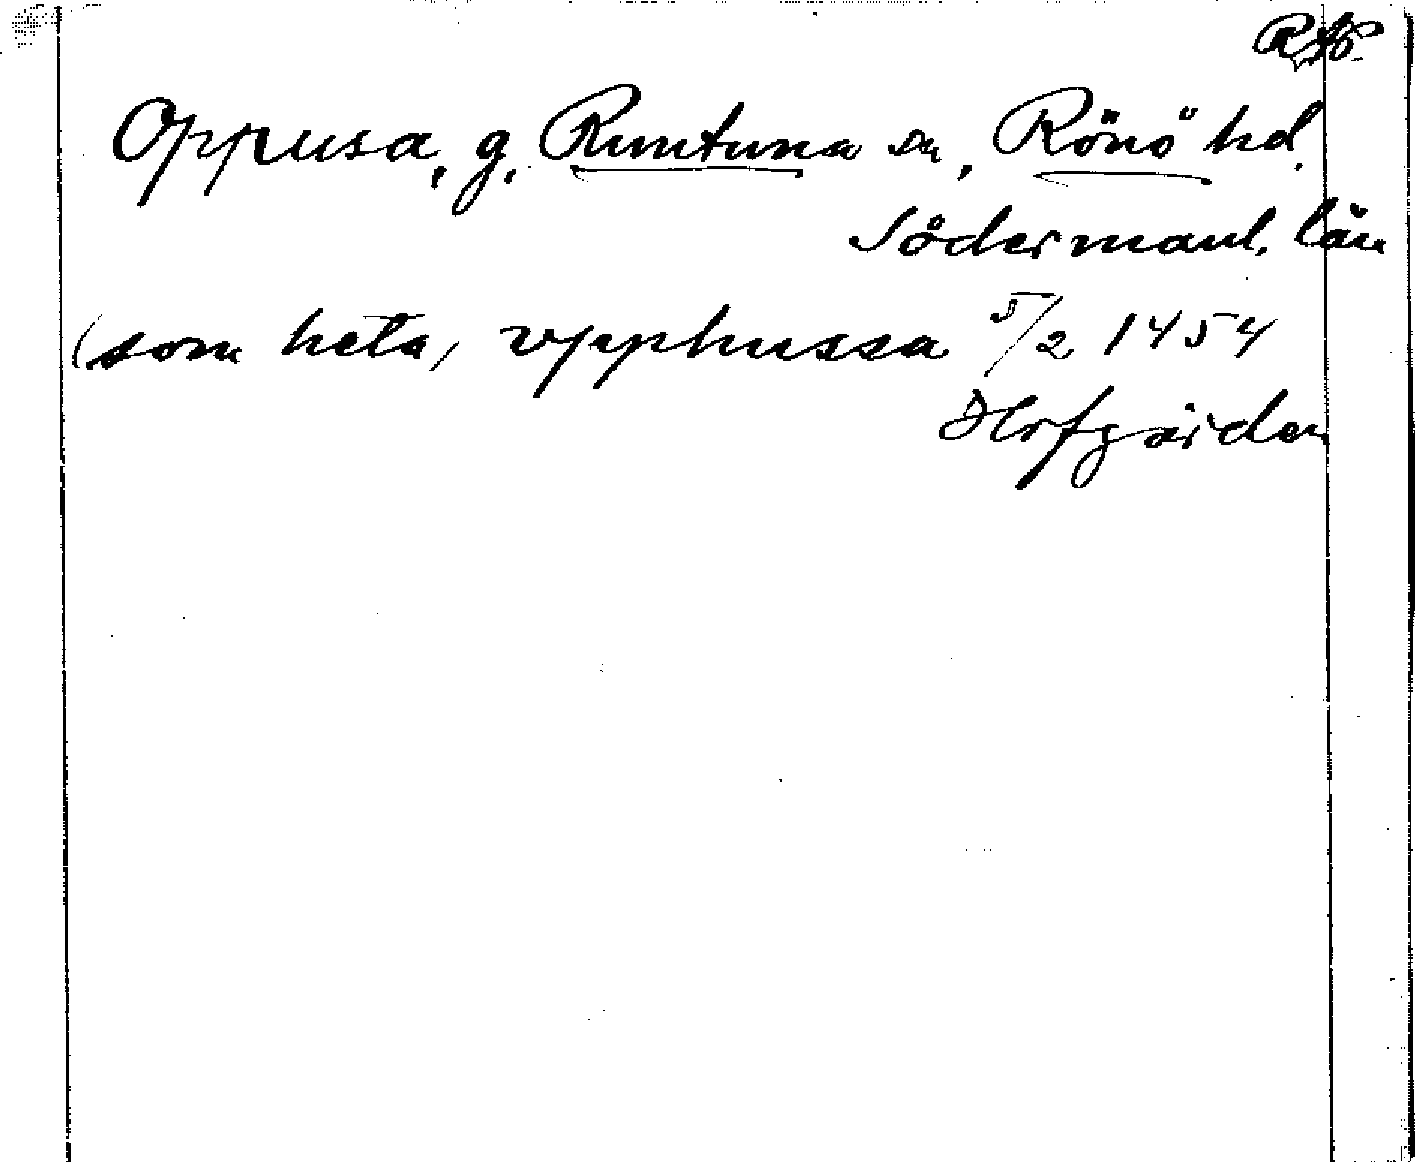 RAP.
Oppusa, g. Runtuna sn, Rönö hd.
Södermanl. län
(som heta) vpphussa 5/2 1454
Hofgården